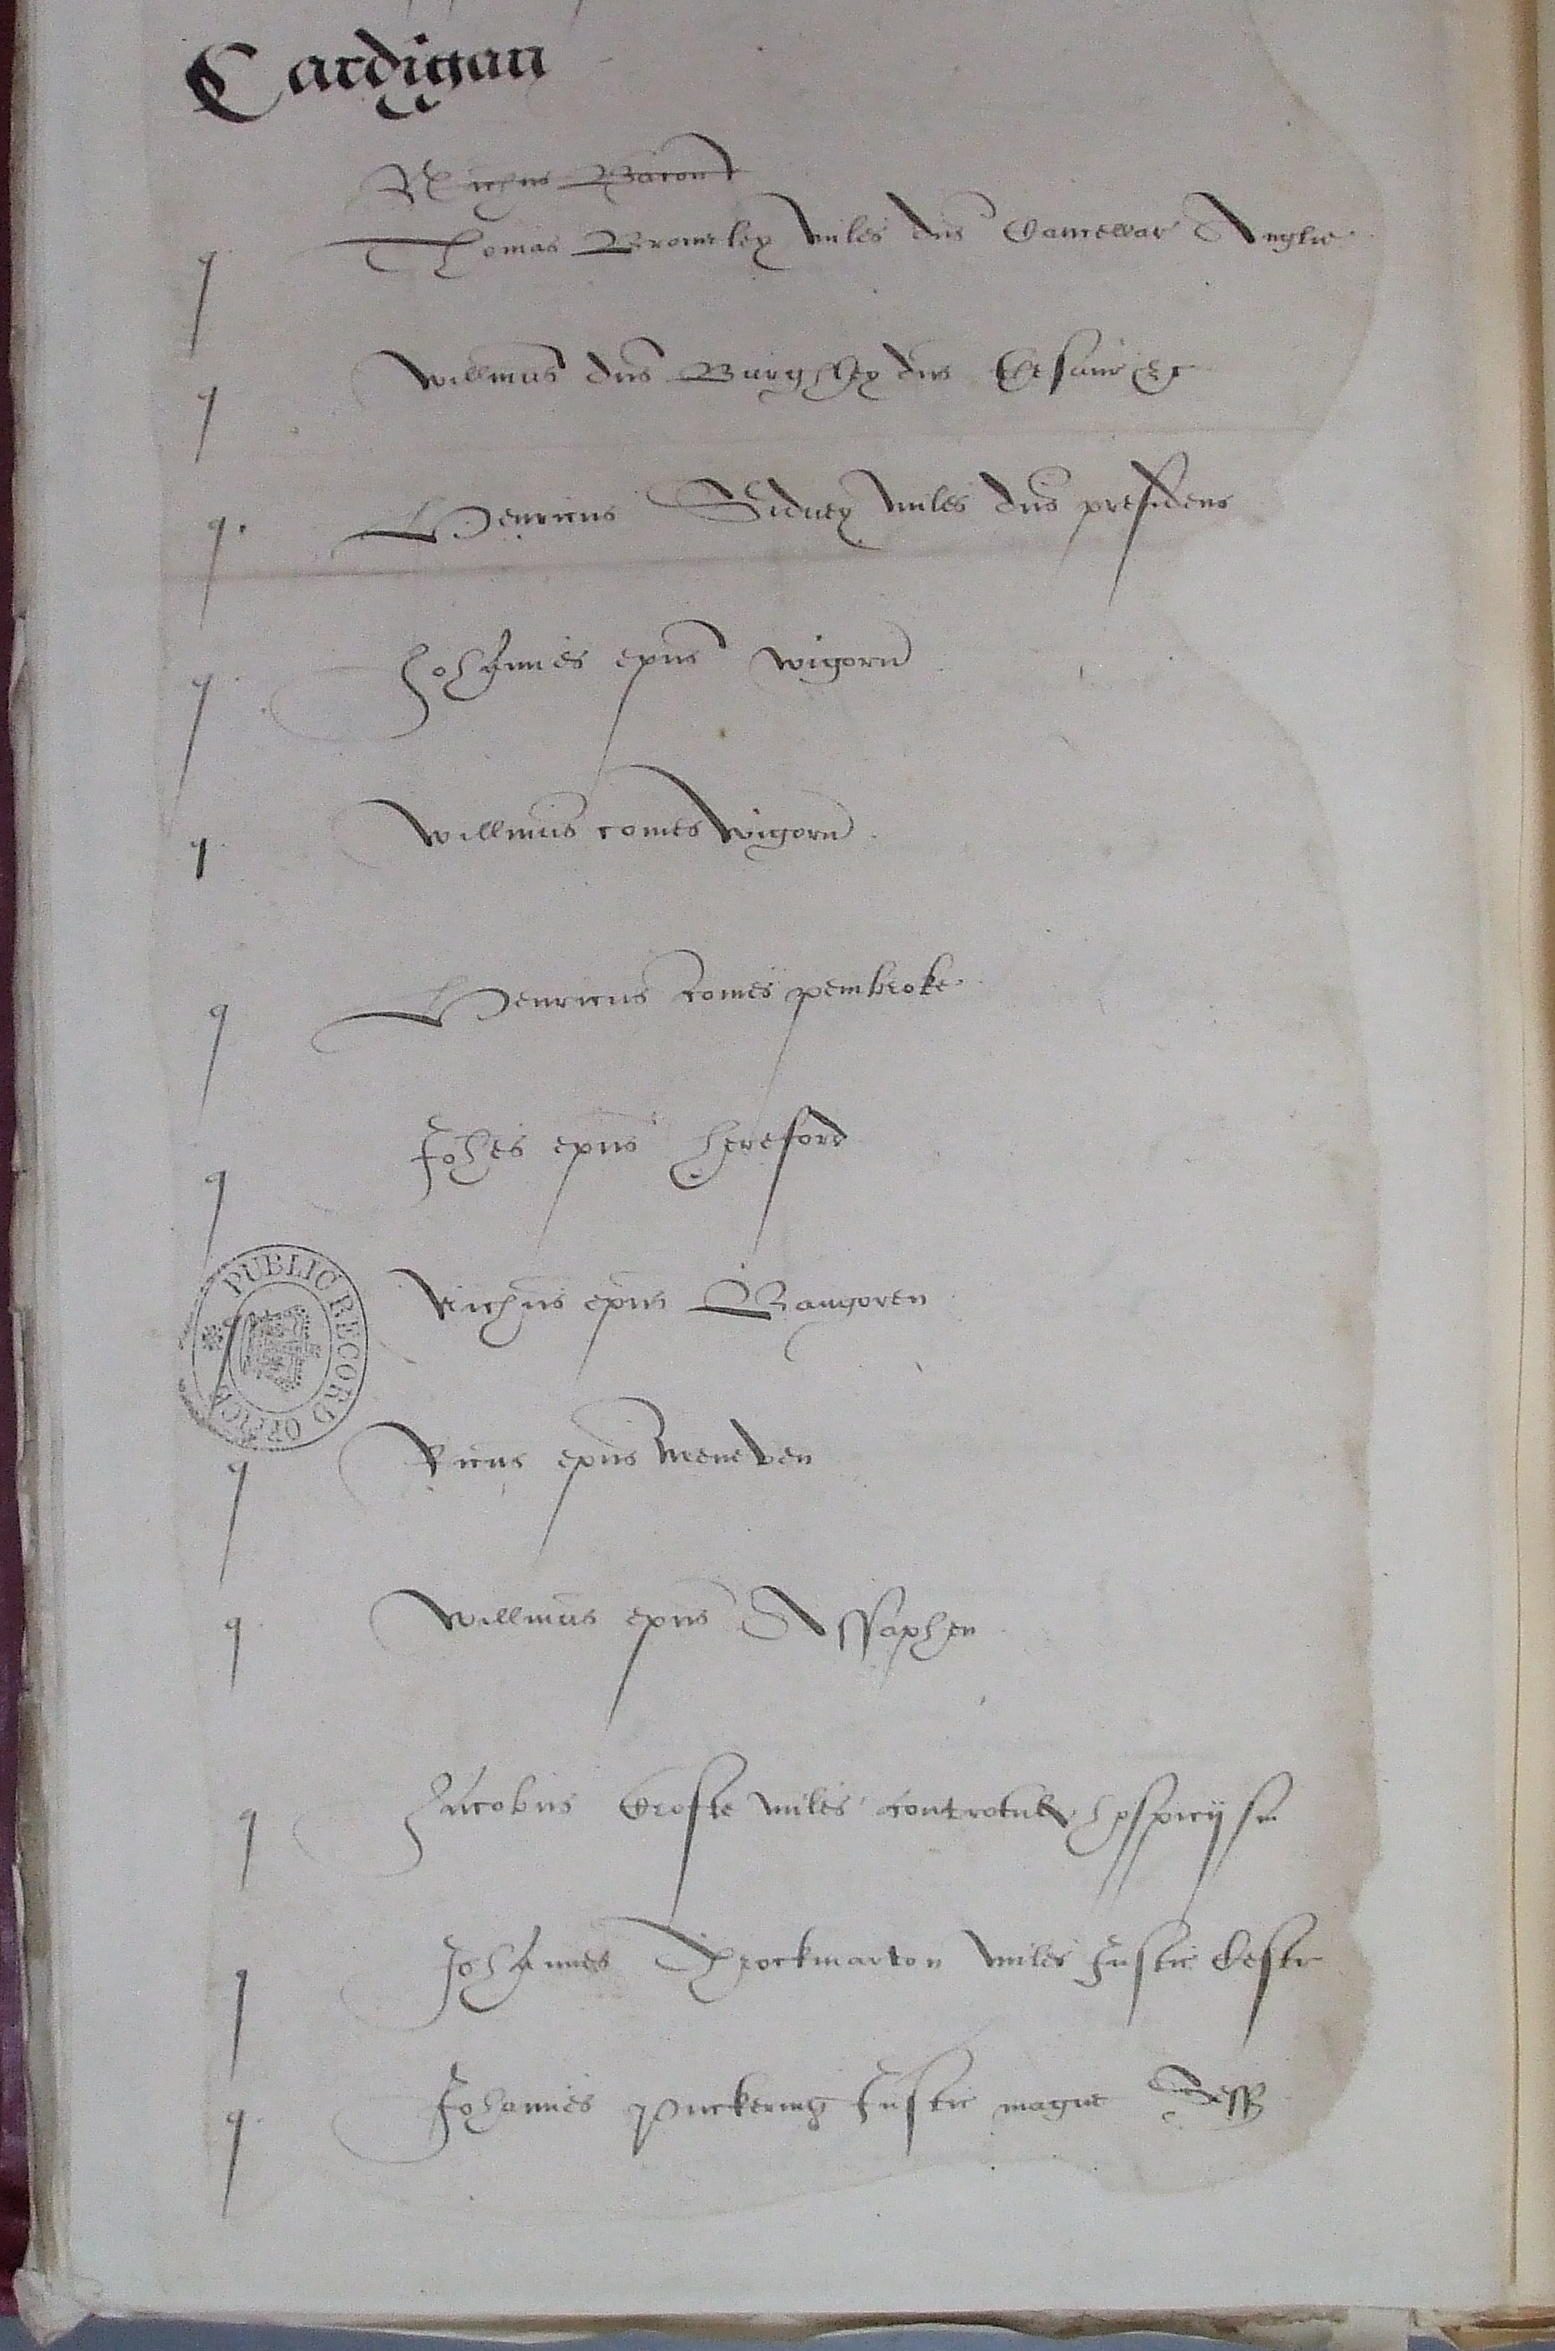 Cardigan
Nichus Bacon
q Thomas Bromley miles dns Cancellar Anglie
q Willmus dns Burghley dns Thesaur &c
q. Henricus Sidney miles dns presidens
q Johannes epus wigorn
q Willmus comes wigorn
q Henricus comes pembroke
q Johes epus hereford
q Nichus epus Bangoren
q Ricus epus Meneven
q Willmus epus Assaphen
q Jacobus Crofte miles controtul hospicij
q Johannes Throckmarton miles Justic Cestr
q Johannes Puckering Justic magne Sess
PUBLIC RECORD OFFICE